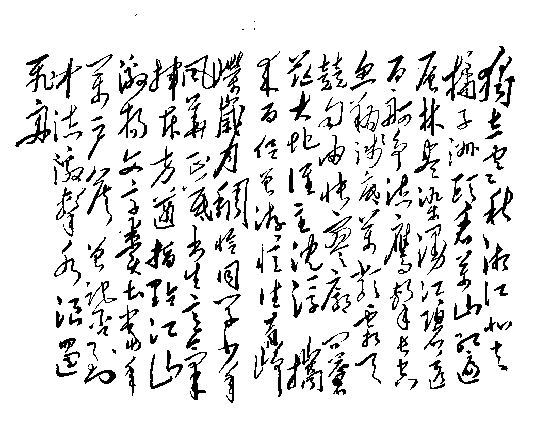 獨立寒秋湘江北去
橘子洲頭看萬山紅遍
層林盡染漫江碧透
百舸爭流鷹擊長空
魚翔淺底萬類霜天
競自由悵寥廓問蒼
茫大地誰主沈浮攜
來百侶曾游憶往昔崢
嶸歲月稠恰同學少年
風華正茂書生意氣
揮斥方遒指點江山
激揚文字糞土當年
萬戶侯曾記否到
中流激擊水浪遏
飛舟